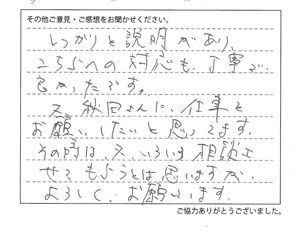 その他ご意見・ご感想をお聞かせください。
しっかりと説明があり、
こちらへの対応も丁寧で
良かったです。
又秋田さんに、仕事を
お願いしたいと思ってます。
その時は、又、いろいろ相談させ
せてもらうとは思いますが、
よろしくお願いします。
ご協力ありがとうございました。